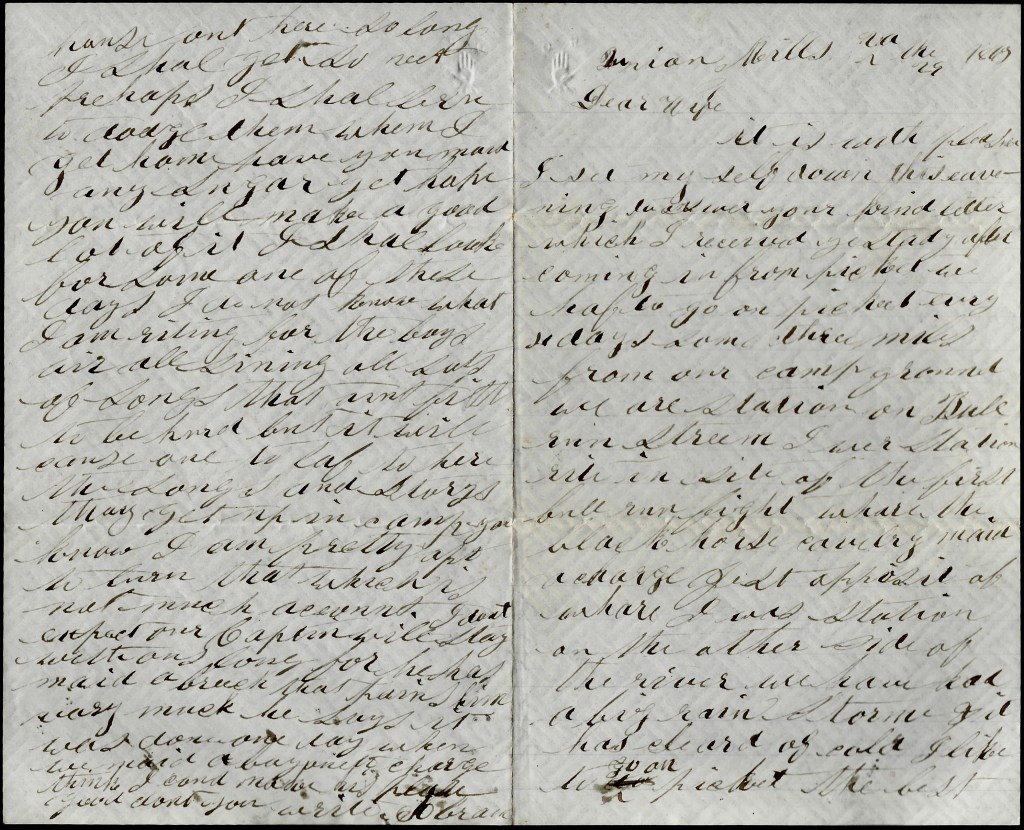 Union Mills Va the 29 1863
Dear Wife
it is with pleasher
I set my self down this eave-
ning to answer your kind letter
which I received yestrdy after
coming in from picket we
haf to go on picket evry
days some three miles
from our camp ground
we are station on Bull
run streem I wer station
rite in site of the first
bull run fight whare the
black horse cavelry maid
a charge jest apposit of
whare I was station
on the other side of
the river we have had
a big rain storme and
has cleard of cold I like
to go on picket the best
out here so long
I shal get so
perhaps I shal lern
to dodge them when I
get home have you maid
any shugar yet hope
you will make a good
lot of it I shal look
for some one of these
days I do not know what
I am riting for the boys
air all sining all sorts
of songs that aint fitt
to be hurd but it will
cause one to laf to here
the songs and storys
thay get up in camp you
know I am pretty apt
to turn that which is
not much account I dont
expect our Captin will stay
with ous long for he has
maid a breach that pains him
vary much he says it
was done one day when
we maid a bayonett charge
think I could make as
good dont you write Abram